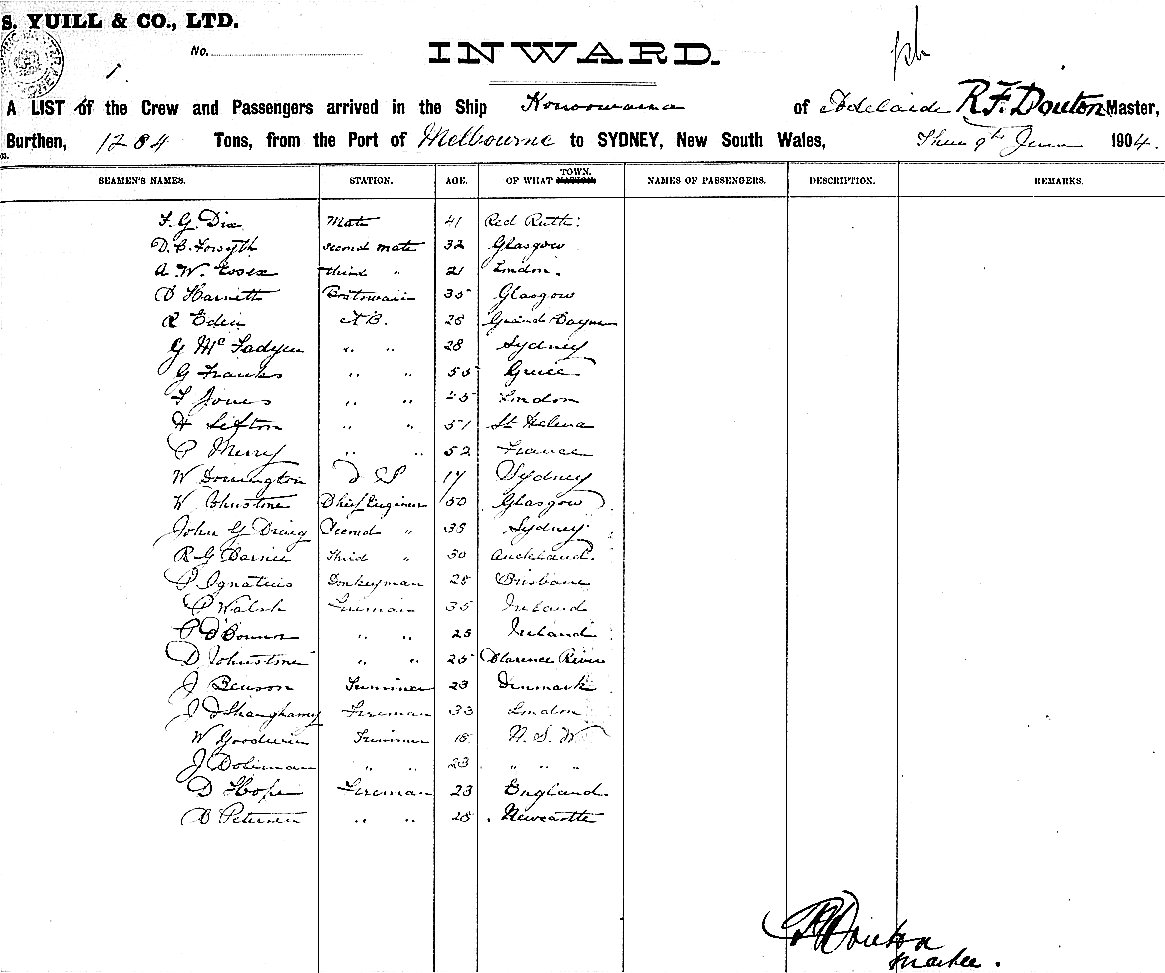 S. YUILL & CO., LTD.
No.
INWARD.
A LIST of the Crew and Passengers arrived in the Ship Konoowarra of Adelaide R.F. Douton Master,
Burthen, 1284 Tons, from the Port of Melbourne to SYDNEY, New South Wales, 9th June 1904.
SEAMEN'S NAMES. STATION. AGE. OF WHAT TOWN. NAMES OF PASSENGERS. DESCRIPTION. REMARKS.
F. G. Dix Mate 41 Red Ruth
D. C. Forsyth Second Mate 32 Glasgow
A. W. Essex third " 21 London.
D Harnett Boatswain 35 Glasgow
R Eden A B. 28
G McFadyen " " 28 Sydney
G Franks " " 55 Greece
F Jones " " 45 London
H Sefton " " 51 St Helena
P Merry " " 52 France
W Donnington 17 Sydney
W Johnstone Chief Engineer 50 Glasgow
John G Craig Second " 38 Sydney
R G Barnie Third " 30 Auckland.
P Ignatius Donkeyman 28 Brisbane
P Walsh Fireman 35 Ireland
P O'Connor " " 25 Ireland
D Johnstone " " 25 Clarence River
J Benson Trimmer 23 Denmark
J Fireman 33 London
W Goodwin Trimmer 18 N. S. W
J " " 23 " " "
D Hope Fireman 23 England.
Petersen " " 28 Newcastle
R F Douton
Master.